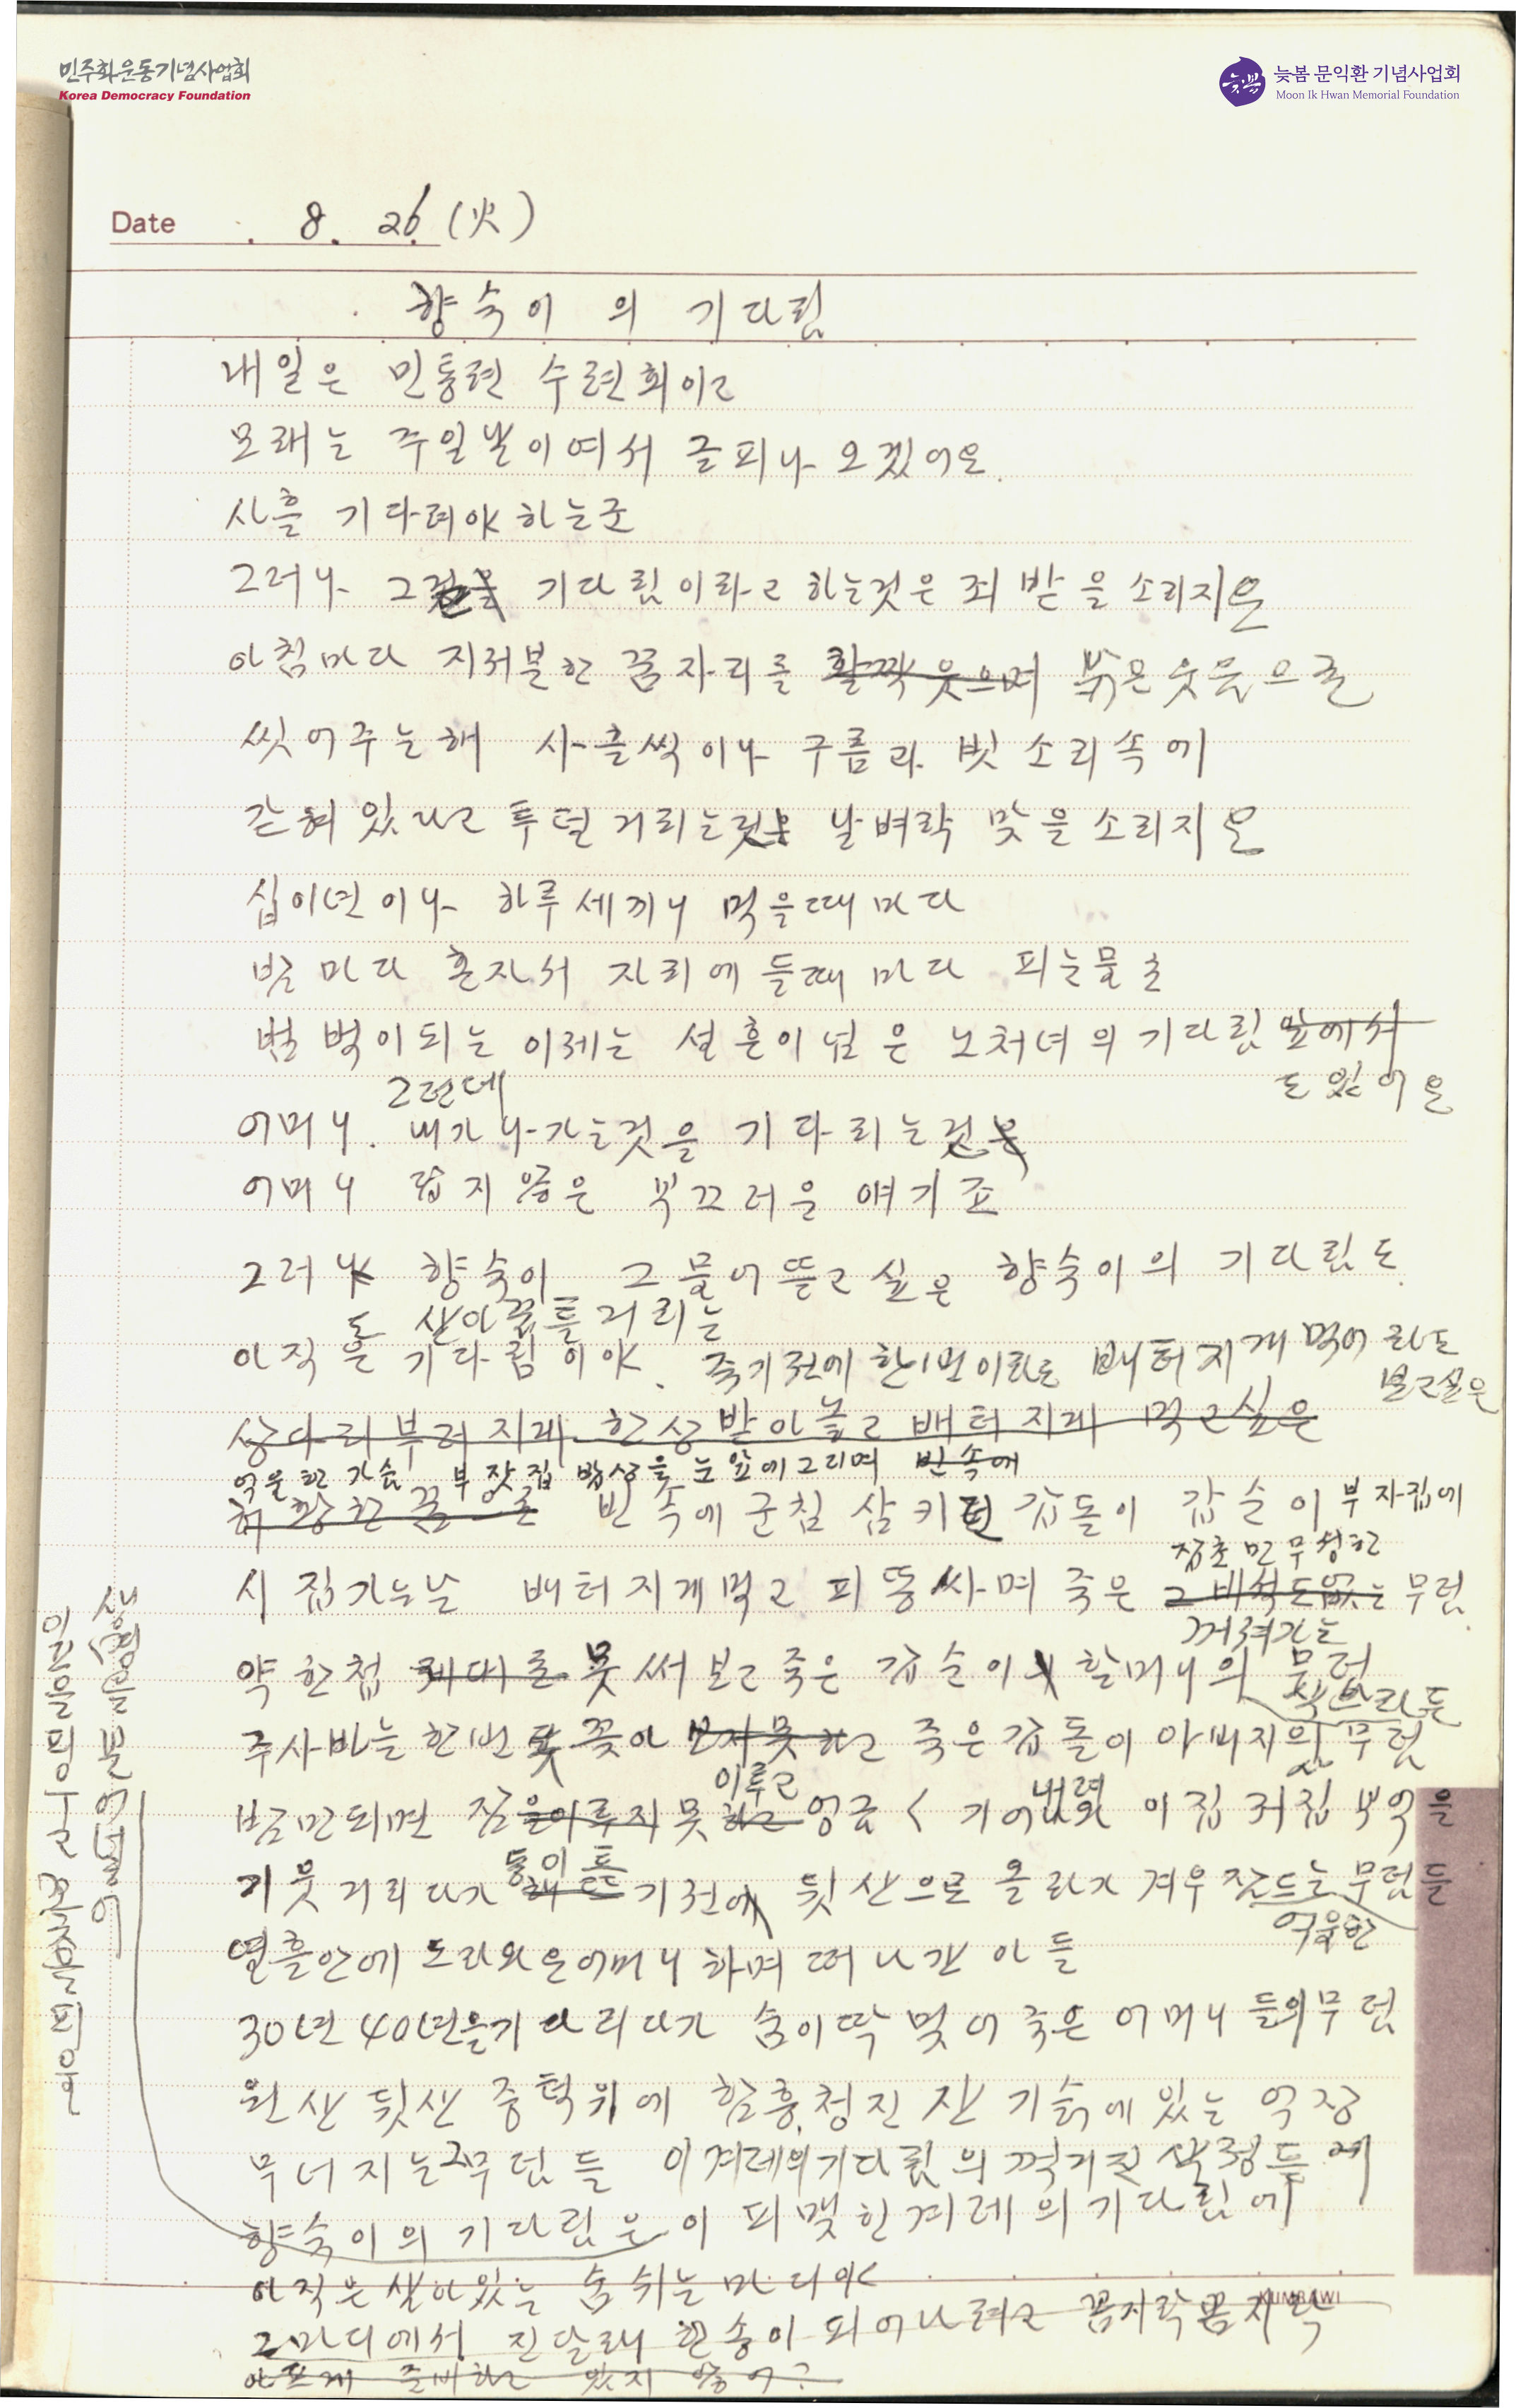 민주화운동기념사업회
Korea Democracy Foundation
늦봄 문익환 기념사업회
Moon Ik Hwan Memorial Foundation
Date . 8. 26. (火)
향숙이의 기다림
내일은 민통련 수련회이고
모래는 주일날이여서 글피나 오겠어요.
사흘 기다려야 하는군
그러나 기다림이라고 하는것은 죄 받을 소리지요
아침마다 지저분한 꿈자리를 활짝 웃으며 밝은 웃음으로
씻어주는 해 사흘씩이나 구름과 빗소리속에
갇혀 있다고 투덜거리는것은 날벼락 맞을 소리지요
십이년이나 하루 세끼니 먹을때마다
밤마다 혼자서 자리에 들때마다 피눈물로
범벅이되는 이제는 설흔이 넘은 노처녀의 기다림 앞에서
도 있어요
그런데
어머니. 내가 나가는것을 기다리는건
어머니 답지 않은 부끄러운 얘기죠
그러나 향숙이 그 물어뜯고 싶은 향숙이의 기다림도
도 살아 꿈틀거리는
아직은 기다림이야. 죽기전에 한번이라도 배터지게 먹어라도
보고싶은
상다리 부러지게 한상 받아놓고 배터지게 먹고싶은
억울한 가슴 부잣집 밥상을 눈앞에 그리며 빈속에
허황한 꿈으로 빈속에 군침 삼키던 갑돌이 갑순이 부자집에
잡초만 무성한
시집가는날 배터지게 먹고 피똥싸며 죽은 그 비석도없는 무덤
꺼져가는
약한첩 제대로 못 써보고 죽은 갑순이 할머니의 무덤
주사바늘 한번 못 꽂아 보지못하고 죽은 갑돌이 아버지의 무덤
이루고 내려와
밤만되면 잠을이루지못하고 엉금 기어 이집 저집 부엌을
동이 트
기웃거리다가 해뜨기전에 뒷산으로 올라가 겨우 잠드는 무덤들
억울한
열흘안에 도라와요 어머니 하며 떠나간 아들
30년 40년을 기다리다가 숨이 딱 멎어 죽은 어머니들의 무덤
원산 뒷산 중턱위에 함흥, 청진 산기슭에 있는 억장
무너지는 무덤들 이겨레의 기다림의 꺽거진 색정들에
향숙이의 기다림은 이 피맺힌 겨레의 기다림에
아직은 살아있는 숨쉬는 마디야
그마디에서 진달래 한송이 피어나려고 꼼지락꼼지락
아프게 준비하고 있지 않어?
KUMBAWI